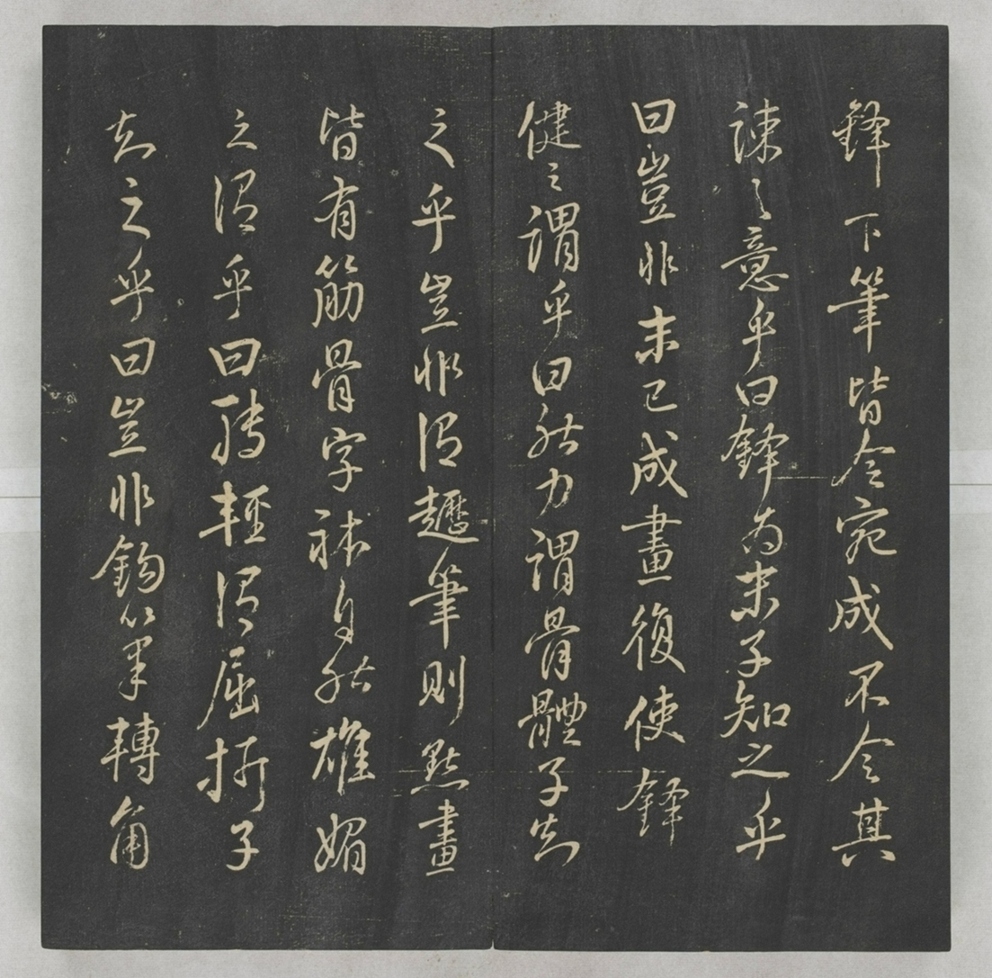 鋒下筆皆令宛成不令其
疎之意乎曰鋒為末子知之乎
曰豈非末已成畫復使鋒
健之謂乎曰然力謂骨體子知
之乎豈非謂趯筆則點畫
皆有筋骨字體自然雄媚
之謂乎曰轉輕謂屈折子
知之乎曰豈非鉤筆轉角